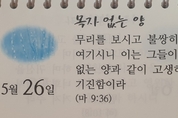 목자 없는 양
무리를 보시고 불쌍히
여기시니 이는 그들이
없는 양과 같이 고생하
기진함이라
(마 9:36)
5월 26일